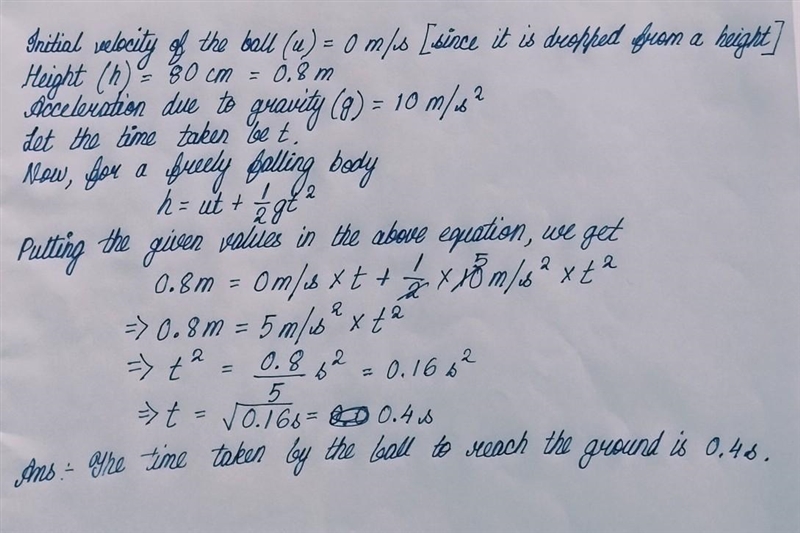 Initial velocity of the ball (u) = 0 m/s [since it is dropped from a height]
Height (h) = 80 cm = 0.8 m
Acceleration due to gravity (g) = 10 m/s²
Let the time taken be t.
Now, for a freely falling body
h = ut + 1/2 gt²
Putting the given values in the above equation, we get
0.8m = 0m/s × t + 1/2 × 10 5 m/s² × t²
⇒ 0.8m = 5m/s² × t²
⇒ t² = 0.8/5 s² = 0.16 s²
⇒ t = √0.16s = 0.4s
Ans :- The time taken by the ball to reach the ground is 0.4s.